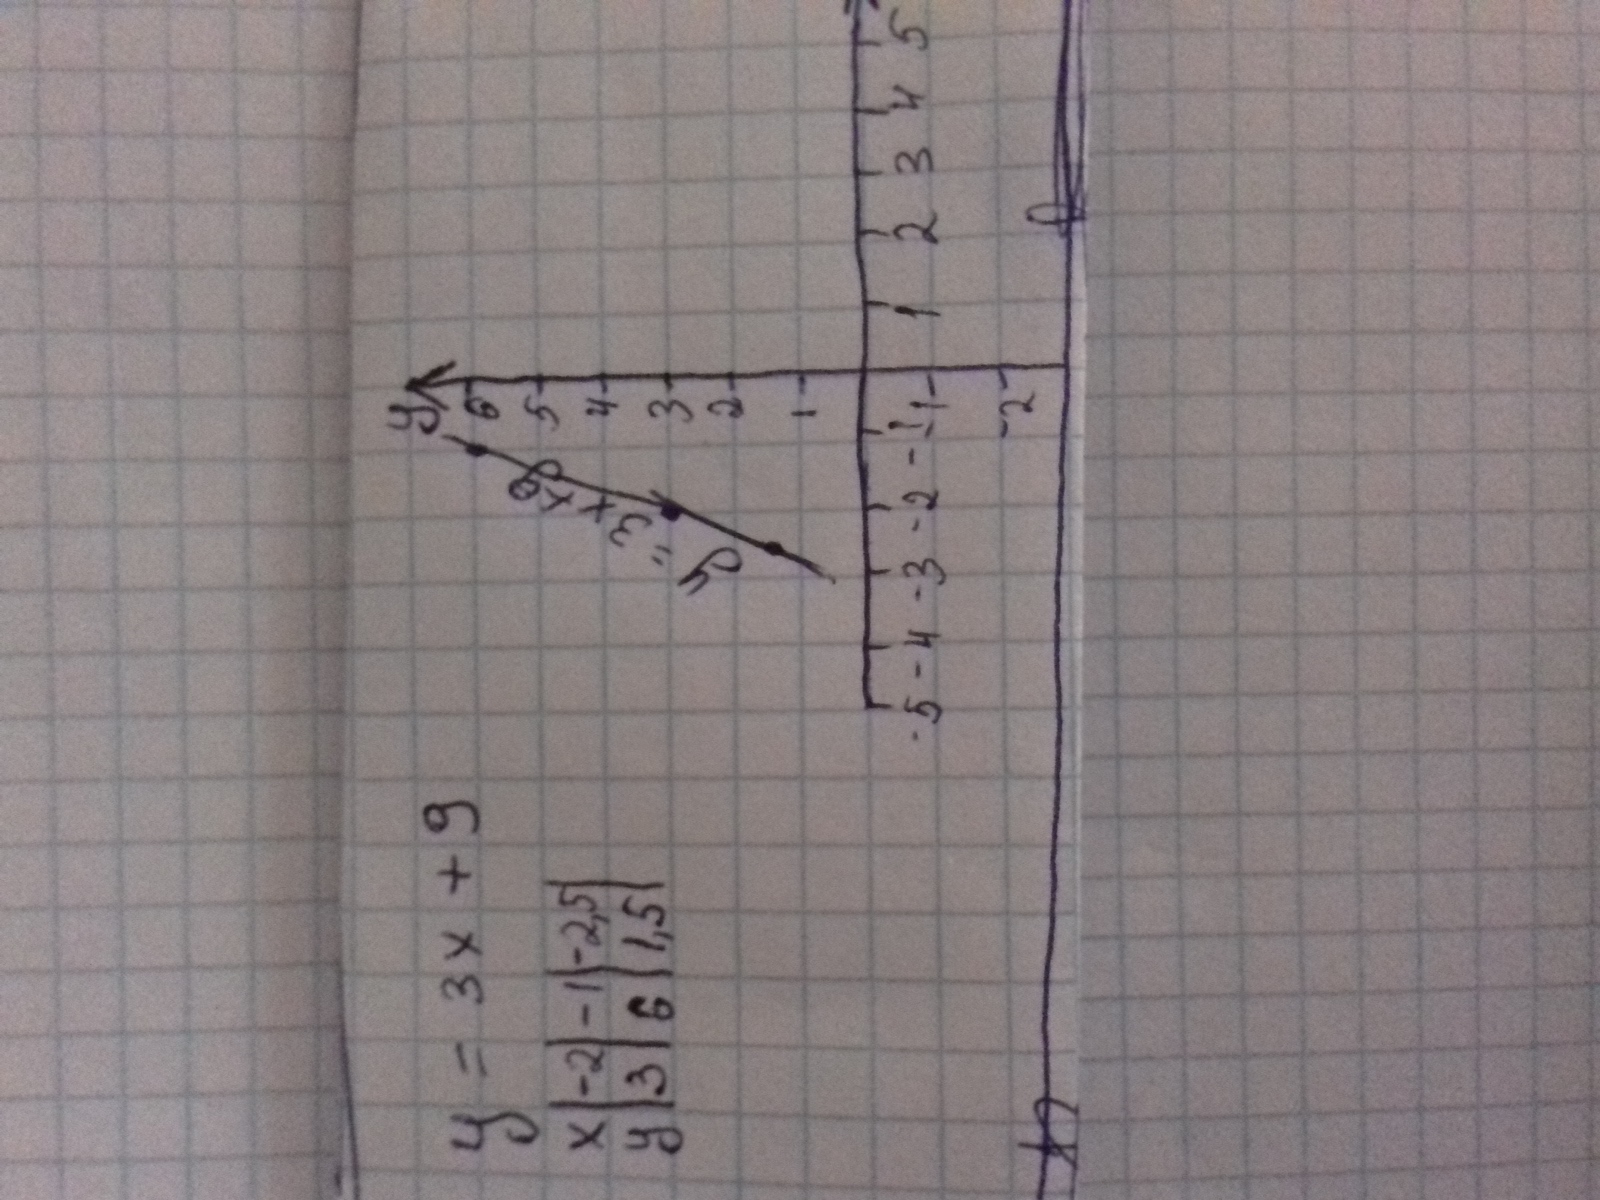 y = 3x + 9
x | -2 | -1 | -2,5 |
y | 3 | 6 | 1,5 |
y
6
5
4
3
2
1
y = 3x + 9
-5 -4 -3 -2 -1 1 2 3 4 5
-1
-2